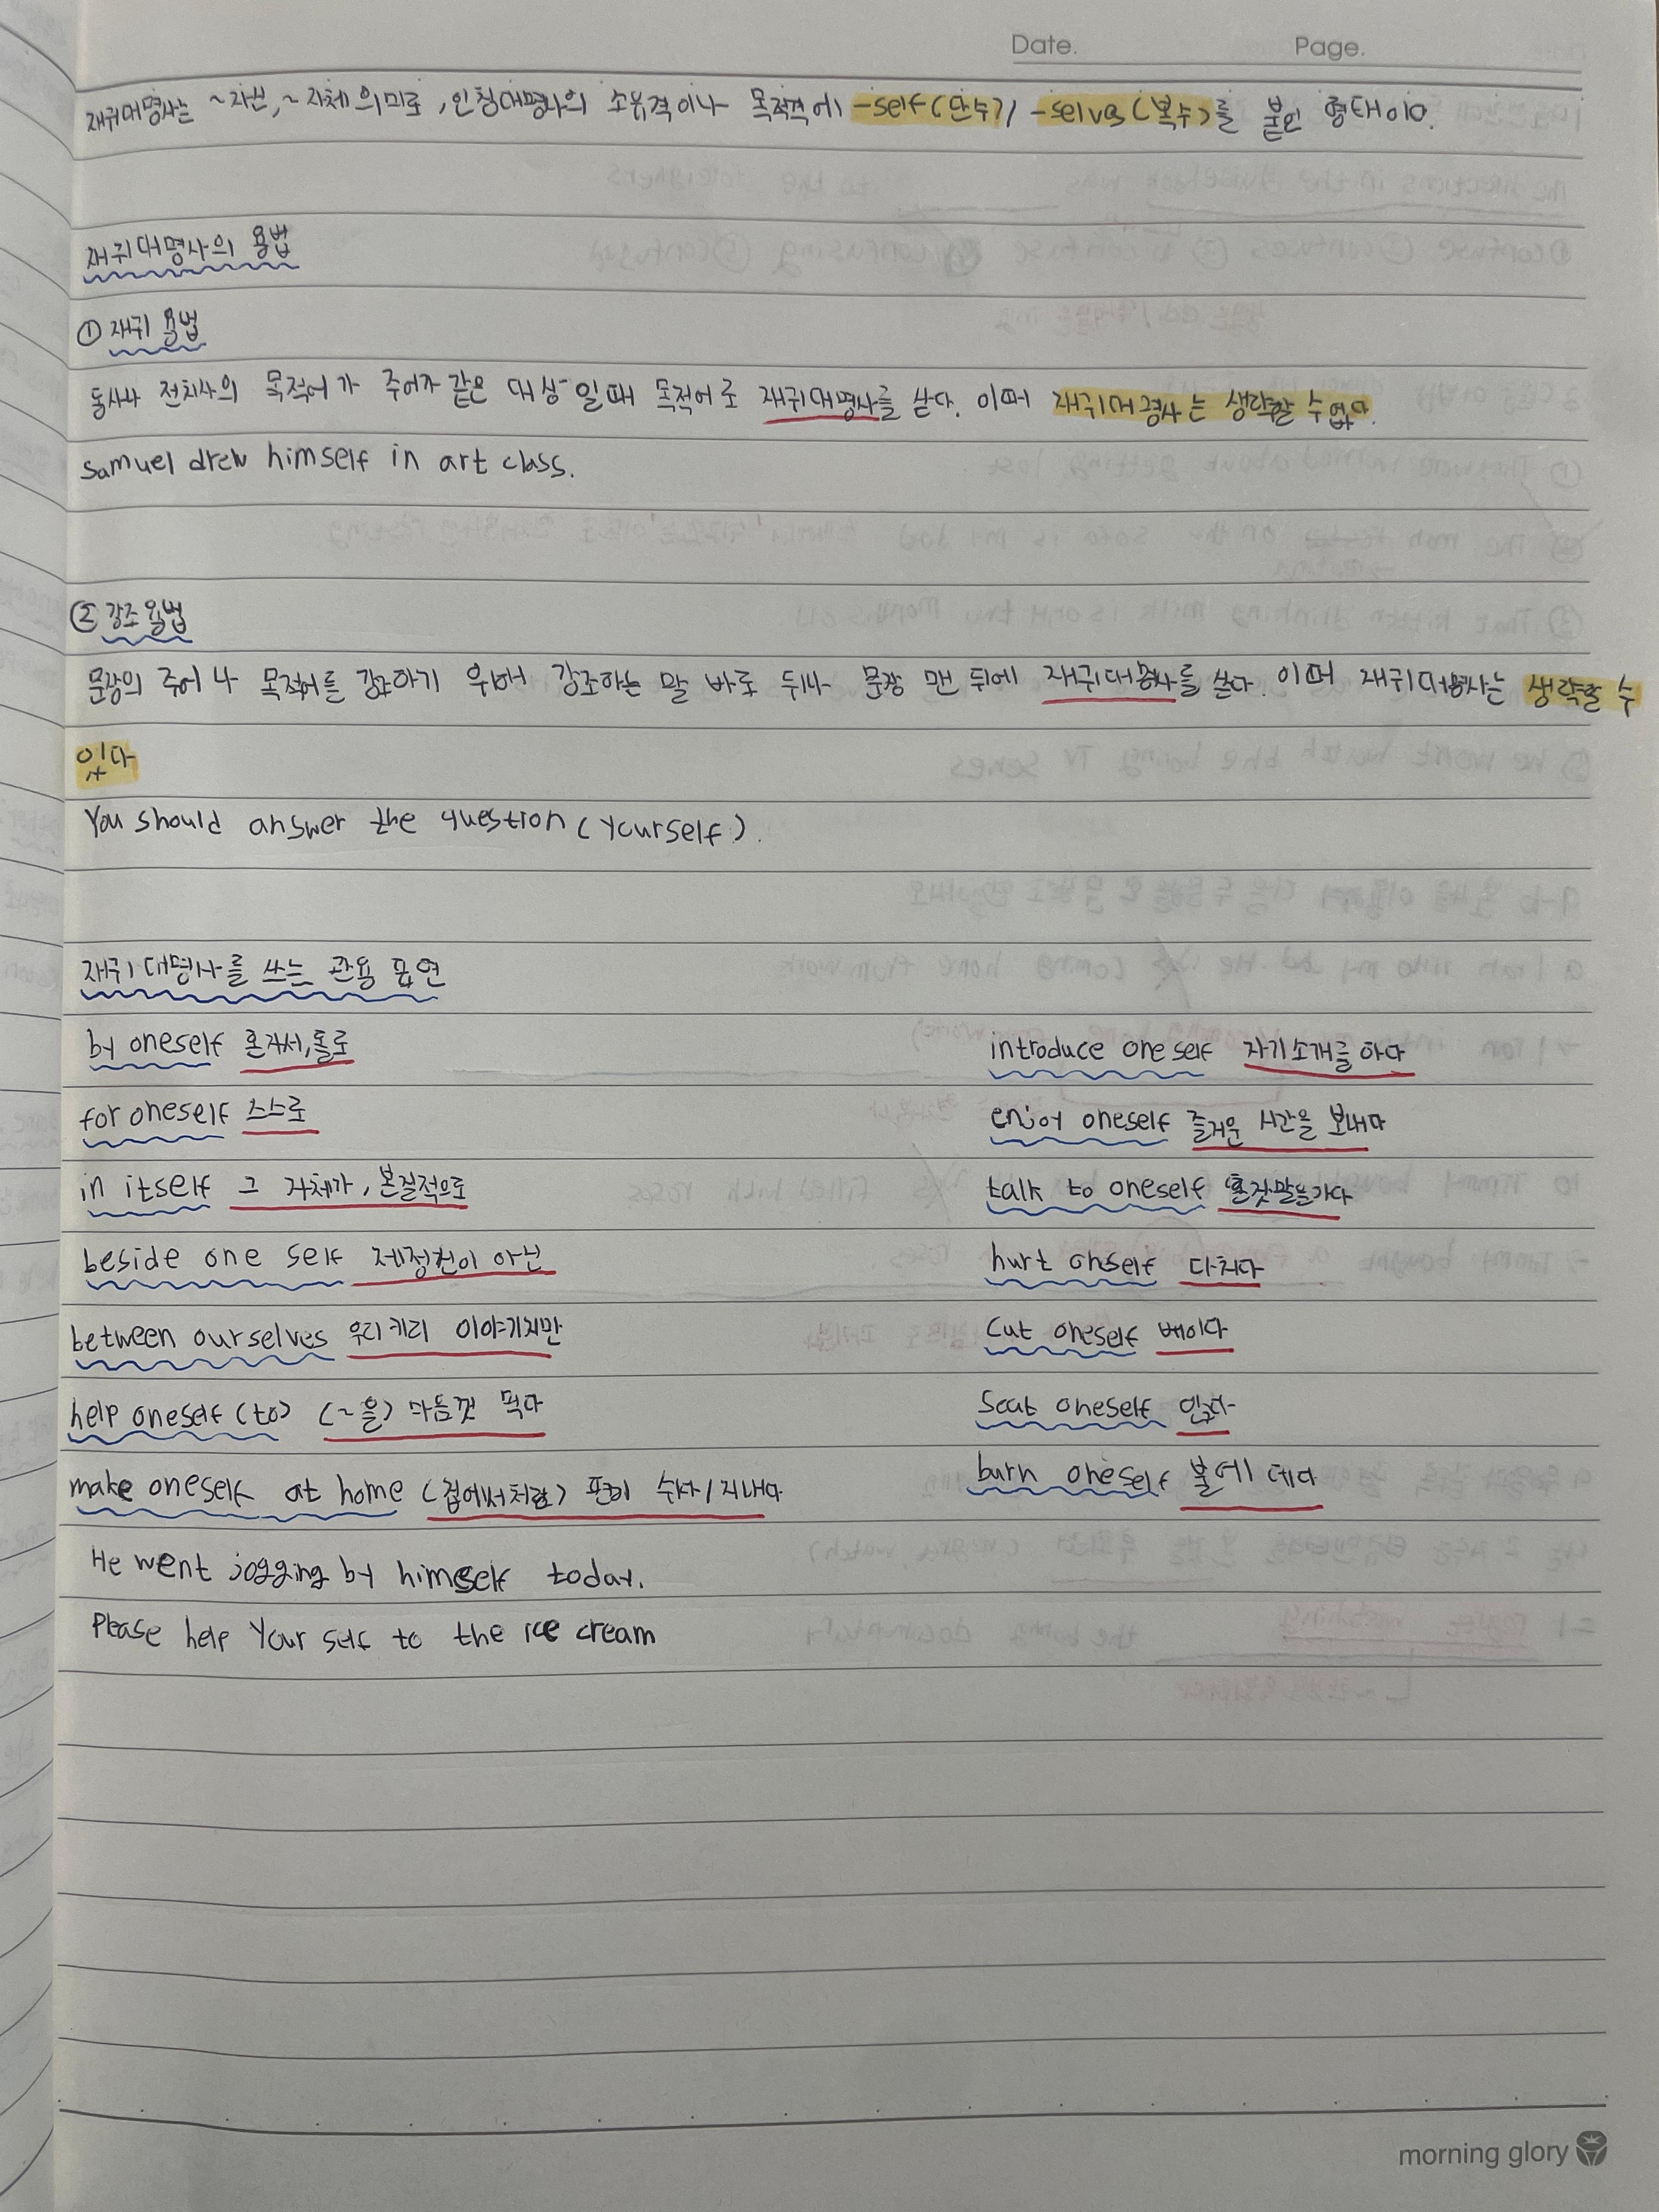 Date. Page.
재귀대명사는 ~자신, ~자체의 의미로, 인칭대명사의 소유격이나 목적격에 -self(단수)/ -selves(복수)를 붙인 형태이다.
재귀대명사의 용법
① 재귀 용법
동사나 전치사의 목적어가 주어와 같은 대상일때 목적어로 재귀대명사를 쓴다. 이때 재귀대명사는 생략할 수 없다.
Samuel drew himself in art class.
② 강조 용법
문장의 주어나 목적어를 강조하기 위해 강조하는 말 바로 뒤나 문장 맨 뒤에 재귀대명사를 쓴다. 이때 재귀대명사는 생략할 수
있다
You should answer the question (yourself).
재귀대명사를 쓰는 관용 표현
by oneself 혼자서, 홀로 introduce oneself 자기소개를 하다
for oneself 스스로 enjoy oneself 즐거운 시간을 보내다
in itself 그 자체가, 본질적으로 talk to oneself 혼잣말을 하다
beside one self 제정신이 아닌 hurt onself 다치다
between ourselves 우리끼리 이야기지만 cut oneself 베이다
help oneself (to) (~을) 마음껏 먹다 Seat oneself 앉다
make oneself at home (집에서처럼) 편히 쉬다/지내다 burn oneself 불에 데다
He went jogging by himself today.
Please help your self to the ice cream
morning glory